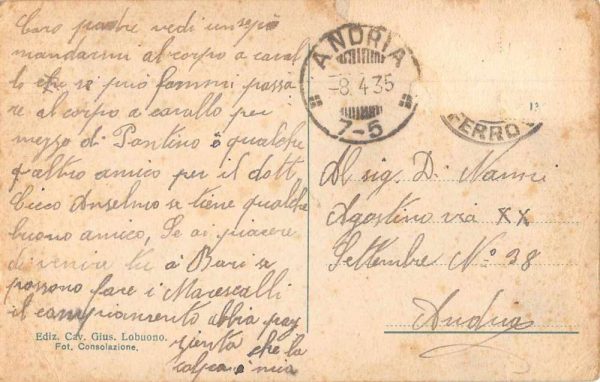 Caro padre vedi un se può
mandarmi al corpo a caval
lo che se può farmi passa
re al corpo a cavallo per
mezzo di Pantino o qualche
q'altro amico per il dott
Cicco Anselmo se tiene qualche
buono amico, Se ai piacere
di venire tu a Bari se
possono fare i Marescalli
il campiamento abbia paz
zienta che la
colpa è mia
Ediz. Cav. Gius. Lobuono.
Fot. Consolazione.
ANDRIA
-8.4.35
7-5
FERROV
Al sig. Di Nanni
Agostino via XX
Settembre N° 38
Andria